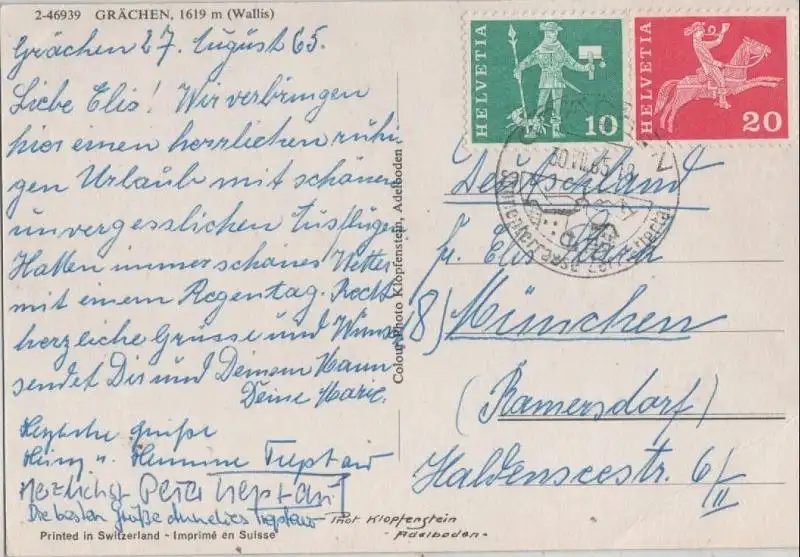 2-46939 GRÄCHEN, 1619 m (Wallis)
Grächen 27. August 65.
Liebe Elis! Wir verbringen
hier einen herrlichen ruhi-
gen Urlaub mit schönen
unvergesslichen Ausflügen
Hatten immer schönes Wetter
mit einem Regentag. Recht
herzliche Grüsse und Wünsche
sendet Dir und Deinem Mann
Deine Marie.
Herzliche Grüße
Heinz u. Treptau
Herzlichst Peter Treptau
Die besten Grüße Treptau
Printed in Switzerland - Imprimé en Suisse
Colour Photo Klopfenstein, Adelboden
Phot Klopfenstein
- Adelboden -
HELVETIA
10
HELVETIA
20
65
Deutschland
Fr. Elis
8) München
(Ramersdorf)
Haldenseestr. 6/
II